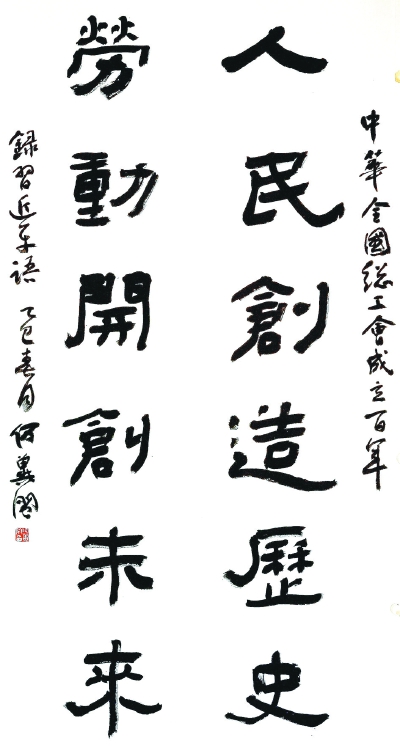 中華全國總工會成立百年
人民創造歷史
勞動開創未來
錄習近平語 乙巳春月 何冀閩